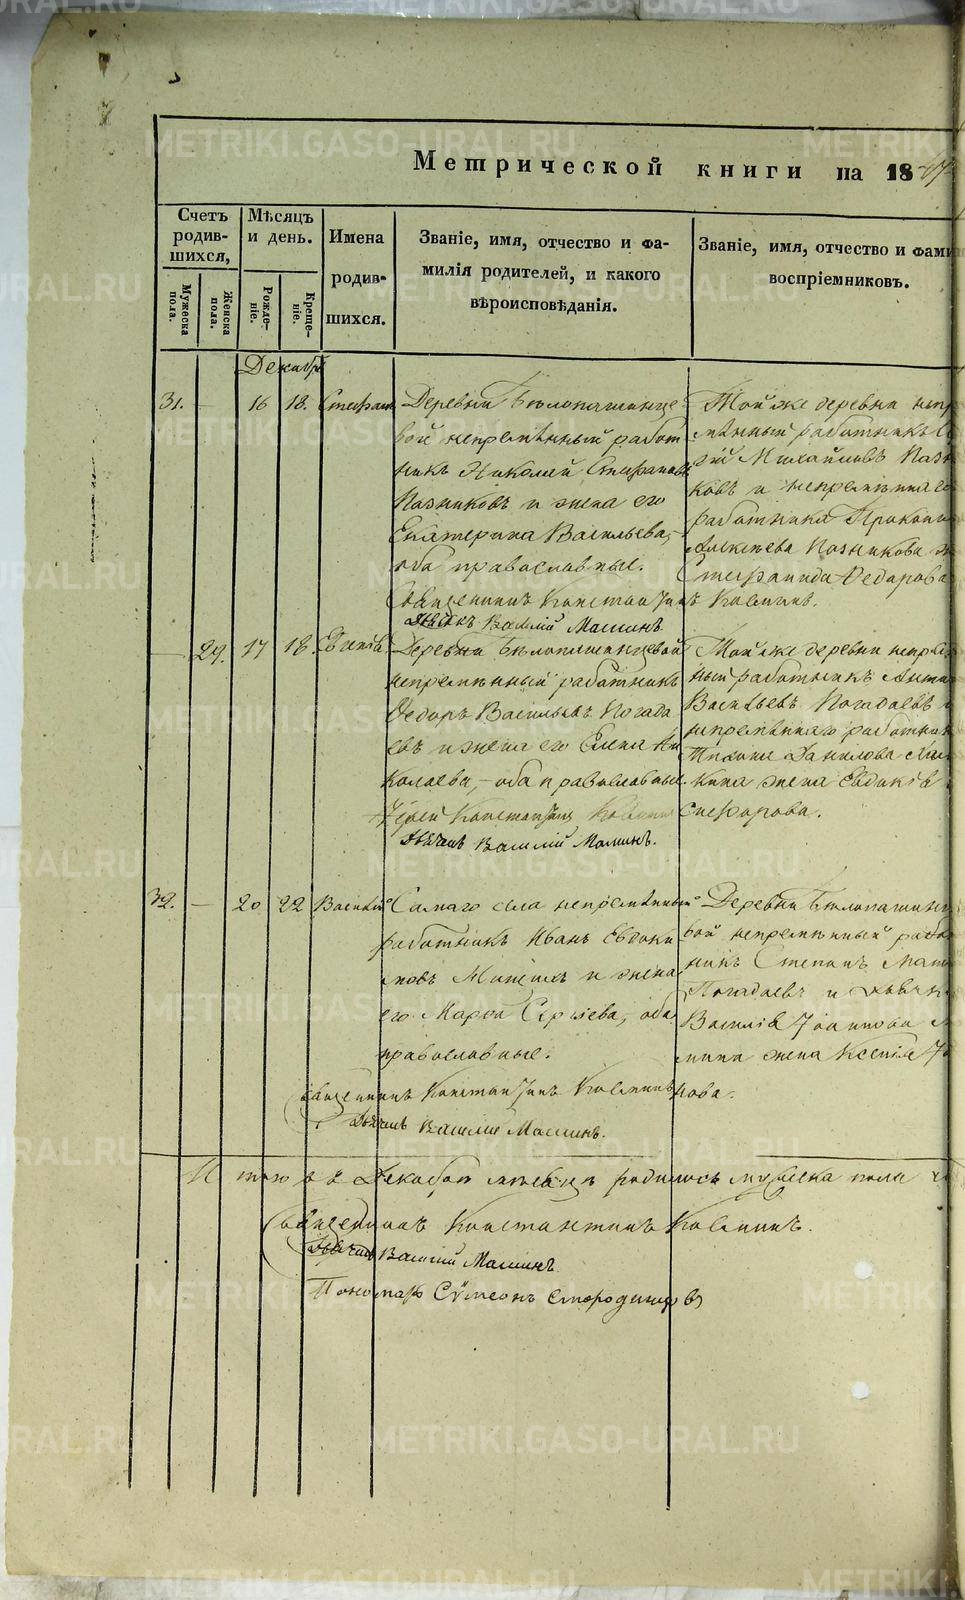 Метрической книги на 18
Счетъ родив-шихся,
Мужеска пола.
Женска пола.
Мѣсяцъ и день.
Рожде-ніе.
Креще-ніе.
Имена родив-шихся.
Званіе, имя, отчество и фа-
милія родителей, и какого
вѣроисповѣданія.
Званіе, имя, отчество и фами
воспріемниковъ.
Декабр
31. — 16 18. Стефанъ
Деревни Бѣлопашинце-
вой непремѣнный работ
никъ Николай Стефановъ
Пазниковъ и жена его
Екатерина Васильева,
оба православные.
Священникъ Константинъ
Дьячекъ Василій Маминъ
Той же деревни непр
мѣнный работникъ
Михайловъ Пазн
ковъ и непремѣннаго
работника Прокопі
Алексѣева Позникова
Стефанида Ѳедорова
— 29. 17 18. Евгенія
Деревни Бѣлопашинцевой
непремѣнный работникъ
Ѳедоръ Васильевъ Погада
евъ и жена его Елена Ни
колаева, — оба православные
Іерей Константинъ
Дьячекъ Василій Маминъ.
Той же деревни непрем
ный работникъ
Васильевъ Погадаевъ
непремѣннаго работник
Данилова
кина жена Евдокія
Никифорова.
32. — 20 22 Василій
Самаго села непремѣнный
работникъ Иванъ Евдоки
мовъ и жена
его Марѳа Сергіева, оба
православные.
Священникъ Константинъ
Дьячекъ Василій Маминъ.
Деревни Бѣлопашинце
вой непремѣнный работ
никъ Степанъ
Погадаевъ и дьячка
Василія Іоаннова М
мина жена Ксенія І
нова.
Итого въ Декабрѣ мѣсяцѣ родилось мужеска пола
Священникъ Константинъ
Дьячекъ Василій Маминъ
Пономарь Сѵмеонъ Смородинцовъ
METRIKI.GASO-URAL.RU